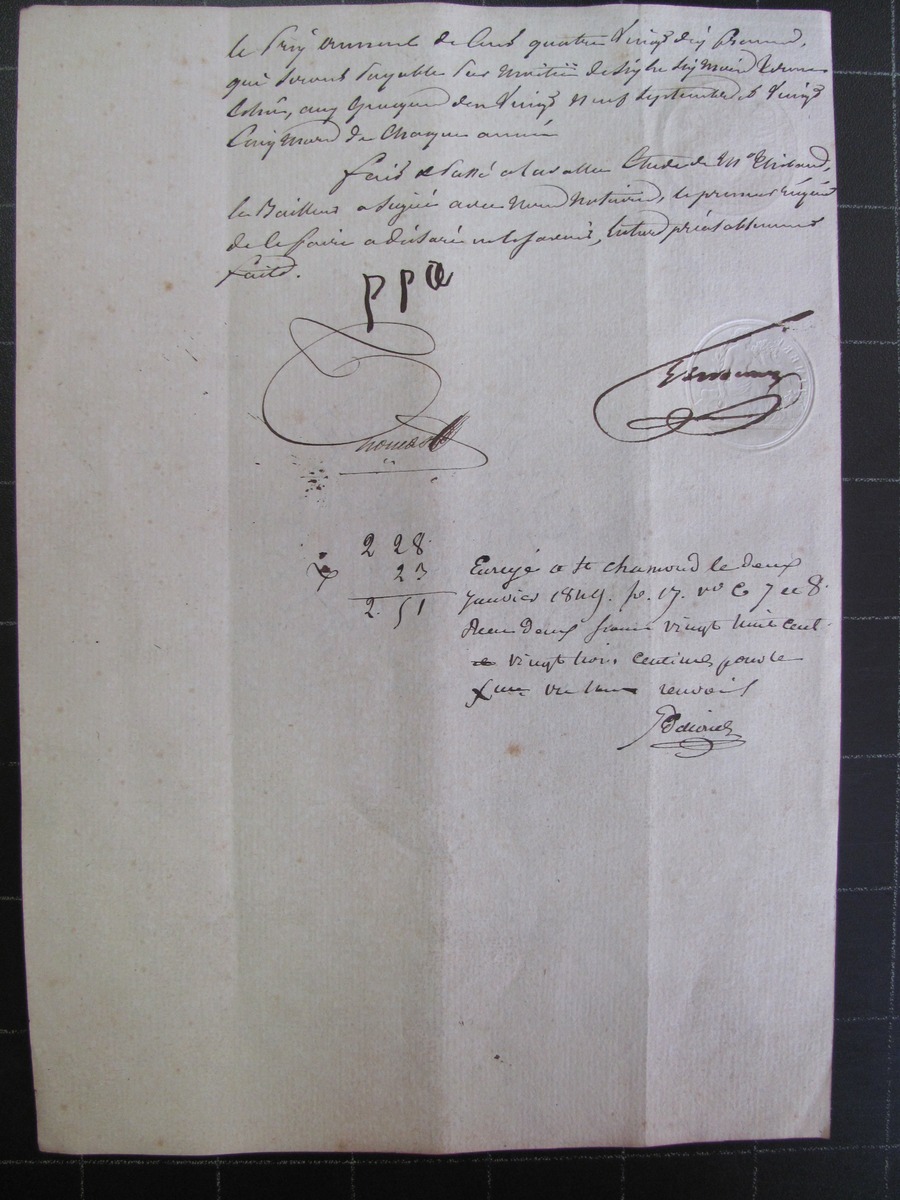 le Prix annuel de Cent quatre Vingt dix francs,
qui seront payable par moitié de six en six mois
aux Epoques des Vingt Neuf Septembre & Vingt
Cinq Mars de Chaque année
fait & Passé a Lavalla Etude de Me Thibaud,
le Bailleur a signé avec Nous Notaires, le preneur requis
de le faire a déclaré ne le savoir, lecture préalablement
faite.
228
23
2.51
Enregé a St chamond le deux
Janvier 1824. fo. 17. vo C 7 et 8.
deux francs vingt huit cent
vingt trois centimes pour le
renvois